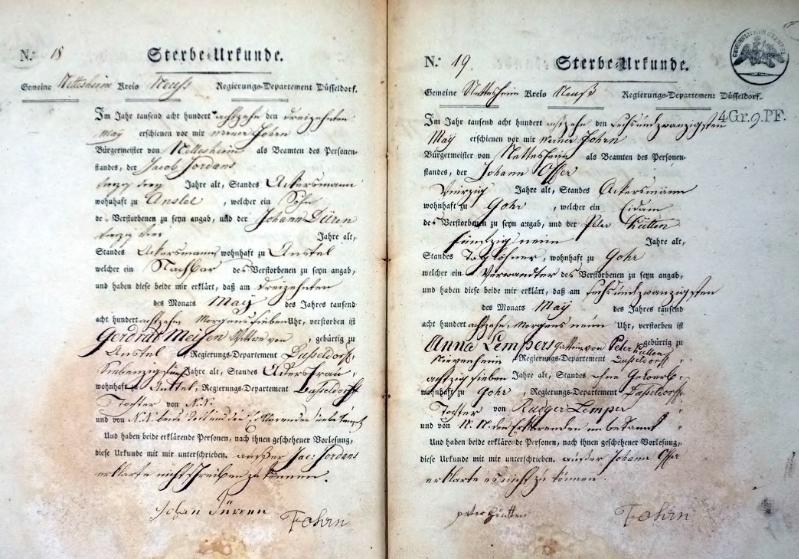 N. 18 Sterbe-Urkunde.
Gemeine Nettesheim Kreis Neuss Regierungs-Departement Düsseldorf.
Im Jahr tausend acht hundert achtzehn den dreizehnten
May erschienen vor mir Werner Fohrn
Bürgermeister von Nettesheim als Beamten des Personen-
standes, der Jacob Jordans
Jahre alt, Standes Ackersmann
wohnhaft zu Anstel welcher ein Sohn
des Verstorbenen zu seyn angab, und der Johann Düren
Jahre alt,
Standes Ackersmann wohnhaft zu Anstel
welcher ein Nachbar des Verstorbenen zu seyn angab,
und haben diese beide mir erklärt, daß am dreizehnten
des Monats May des Jahres tausend
acht hundert achtzehn Morgens sieben Uhr, verstorben ist
Gerdrut Meisen Wittwe von gebürtig zu
Anstel Regierungs-Departement Düsseldorf,
Jahre alt, Standes Ackersfrau
wohnhaft zu Anstel, Regierungs-Departement Düsseldorf
Tochter von N.N.
und von N.N.
Und haben beide erklärende Personen, nach ihnen geschehener Vorlesung,
diese Urkunde mit mir unterschrieben. außer Jac: Jordans
erklarte nicht schreiben zu können.
Johan Türenn Fohrn
N. 19. Sterbe-Urkunde.
Gemeine Nettesheim Kreis Neuß Regierungs-Departement Düsseldorf.
4Gr.9.PF.
Im Jahr tausend acht hundert achtzehn den sechsundzwanzigsten
May erschienen vor mir Werner Fohrn
Bürgermeister von Nettesheim als Beamten des Personen-
standes, der Johann Offer
vierzig Jahre alt, Standes Ackersmann
wohnhaft zu Gohr, welcher ein Eidam
des Verstorbenen zu seyn angab, und der Peter Kütten
fünfzig neun Jahre alt,
Standes Taglöhner, wohnhaft zu Gohr
welcher ein Verwandter des Verstorbenen zu seyn angab,
und haben diese beide mir erklärt, daß am sechsundzwanzigsten
des Monats May des Jahres tausend
acht hundert achtzehn Morgens neun Uhr, verstorben ist
Anna Lempers Gattin von Peter Kütten gebürtig zu
Nievenheim Regierungs-Departement Düsseldorf
achtzig sieben Jahre alt, Standes ohne Gewerb
wohnhaft zu Gohr, Regierungs-Departement Düsseldorf
Tochter von Rutger Lemper
und von N.N. den Erklärenden unbekannt
Und haben beide erklärende Personen, nach ihnen geschehener Vorlesung,
diese Urkunde mit mir unterschrieben. außer Johann Offer
erklarte es nicht zu können.
peter Fohrn